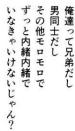 俺達って兄弟だし
男同士だし
その他モロモロで
ずっと内緒内緒で
いなきゃいけないじゃん？